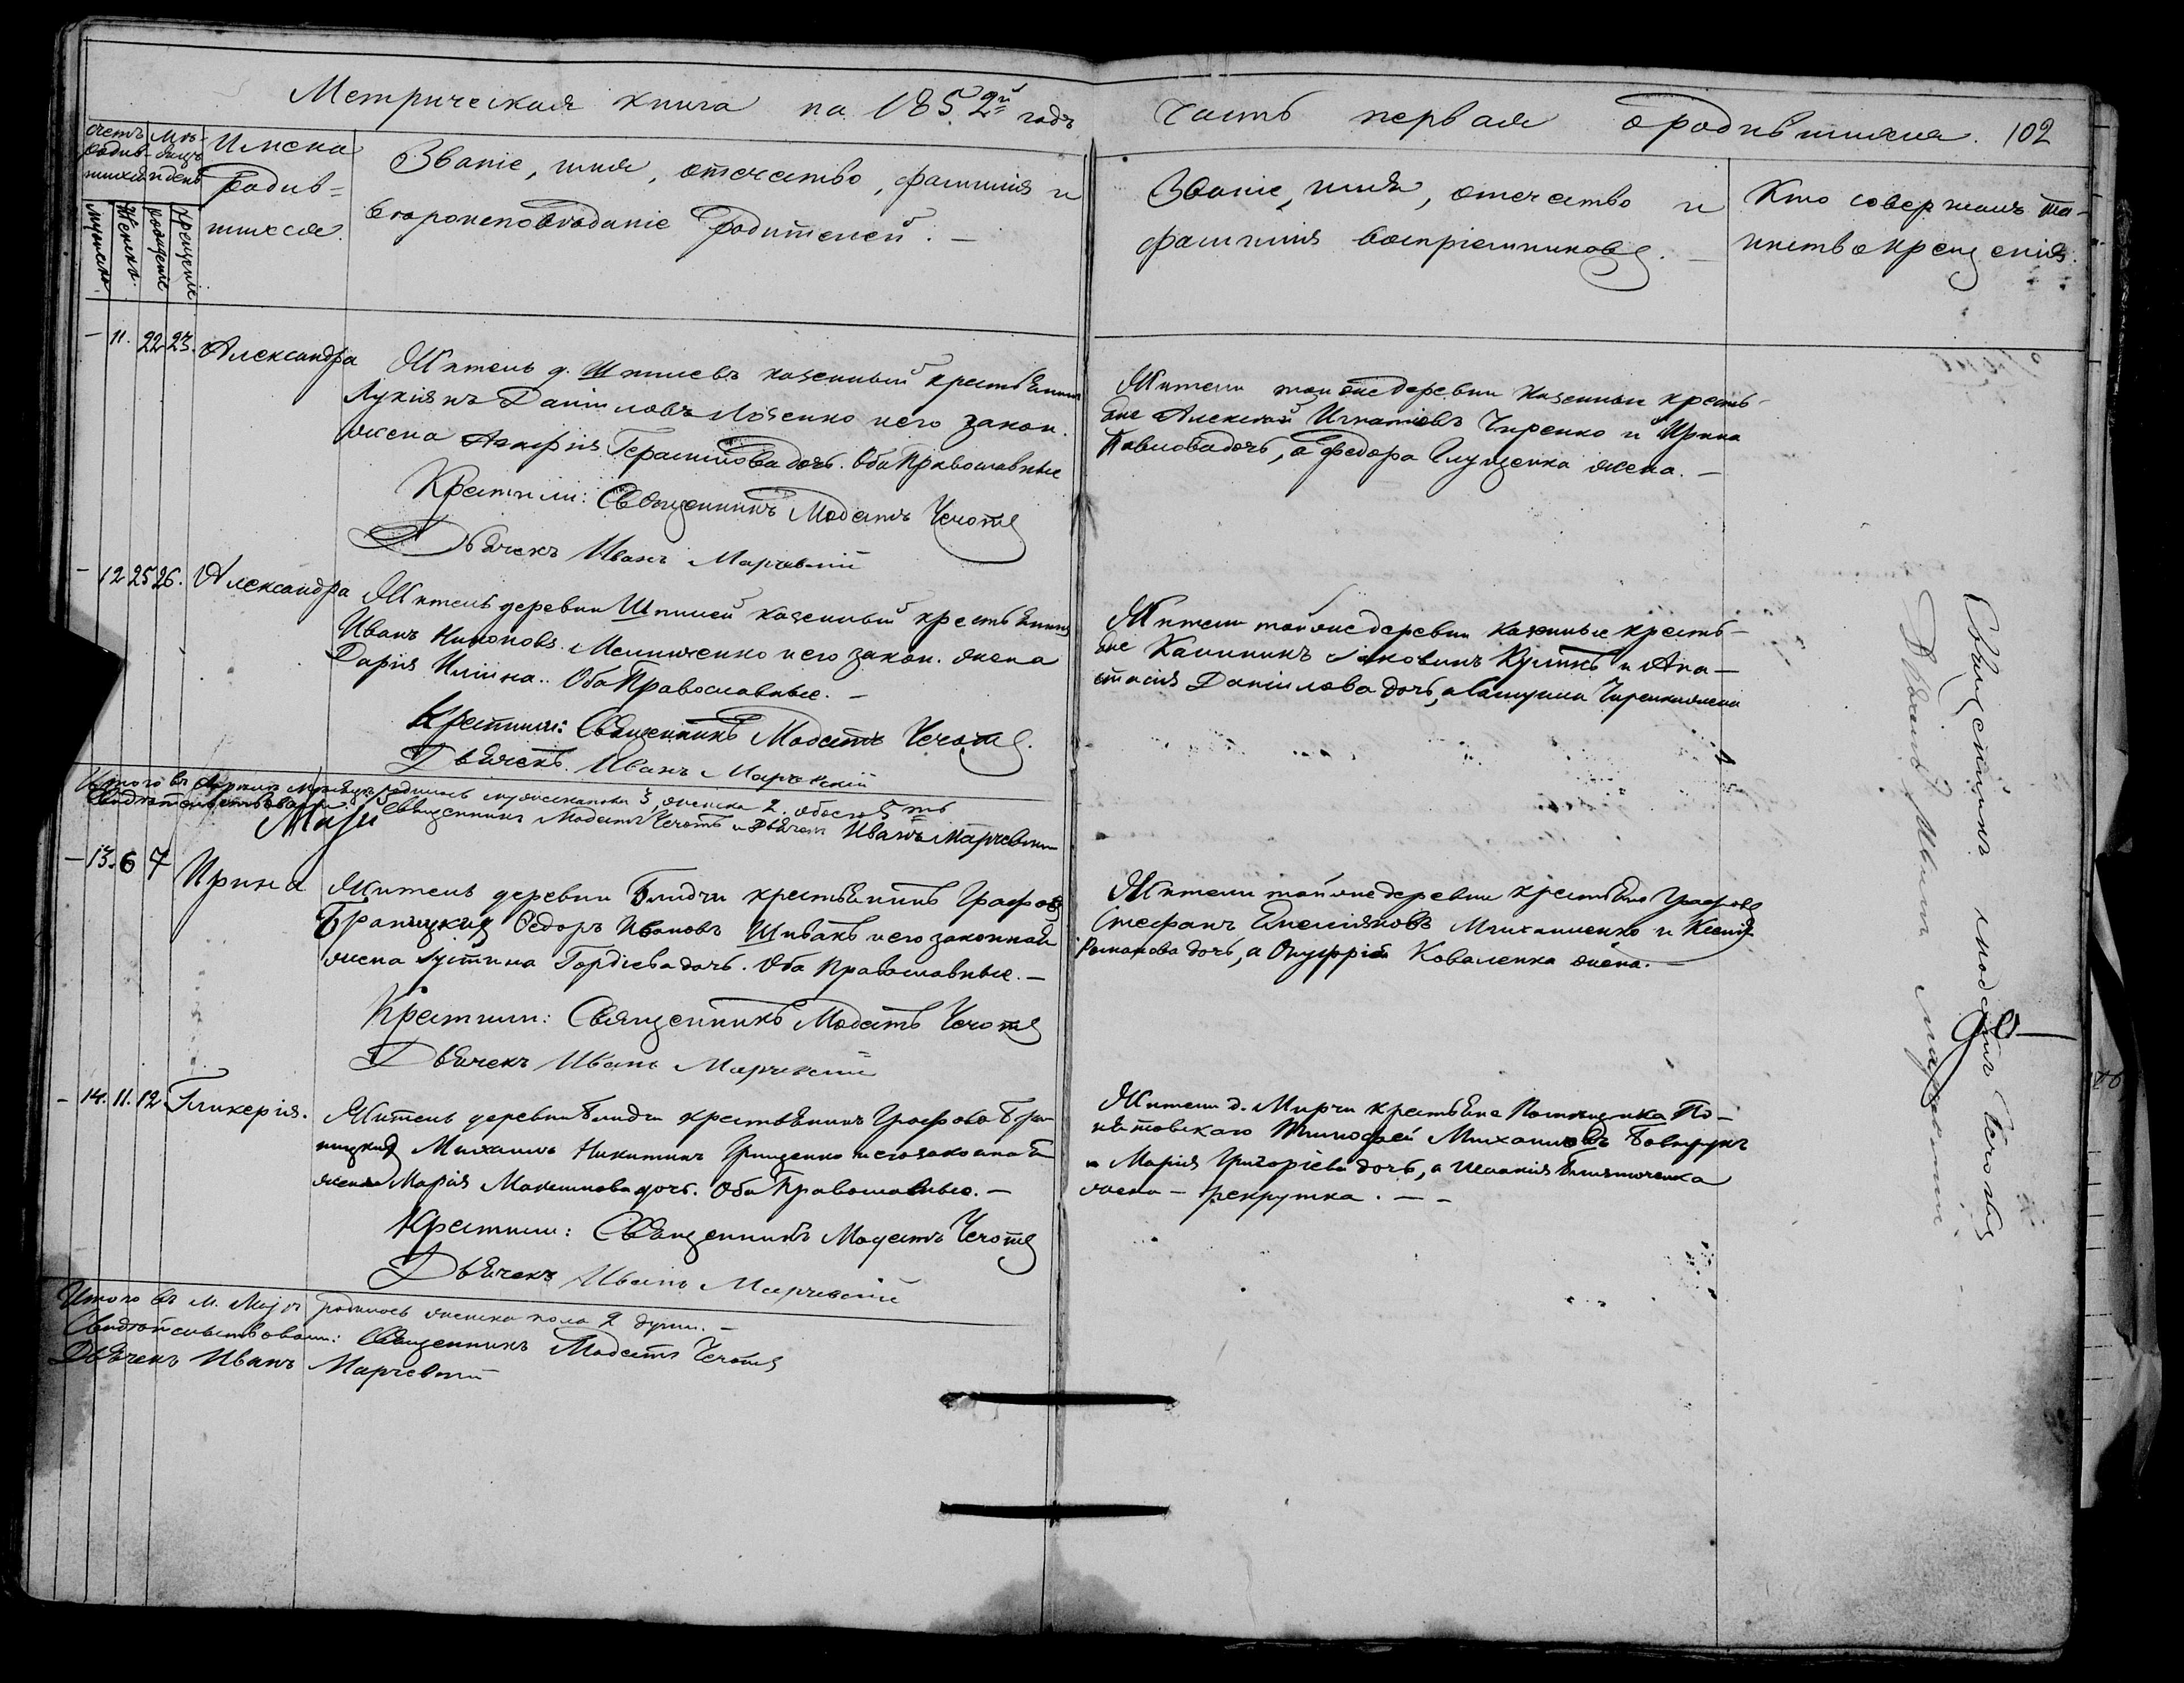 Метрическая книга на 1852й годъ
Часть первая о родившихся. 102
Счетъ родив-шихся
Мѣ-сяцъ и день
Имена
Родив=
шихся.
Званіе, имя, отечество, фамилія и
вѣроисповѣданіе Родителей. —
Званіе, имя, отечество и
фамилія воспріемниковъ. —
Кто совершалъ та-
инство крещенія.
Мужеска.
Женска.
рожденіе
крещеніе
— 11. 22 23. Александра
Житель д. Шпилевъ казенный крестьянинъ
Лукіянъ Даніиловъ Лозенко и его закон.
жена Герасимова дочь. Оба Православные
Крестили: Священникъ Модестъ Чеготъ
Дьячекъ Иванъ Марчевскій
Жители той же деревни казенные кресть-
яне Алексѣй Игнатіевъ Чиренко и Ирина
Павлова дочь, а Федора Глущенка жена. —
— 12 25 26. Александра
Житель деревни Шпилей казенный крестьянинъ
Иванъ Никоновъ Мельниченко и его закон. жена
Дарія Иліина.. Оба Православные. —
Крестили: Священникъ Модестъ Чеготъ.
Дьячекъ. Иванъ Марчевскій
Жители той же деревни казенные кресть-
яне Калиникъ Яковинъ Куликъ и Ана-
стасія Даніилова дочь, а Чиренка жена
Итого въ Априлѣ Мѣсяцѣ родилось мужеска пола 3, женска 2. обоего 5ть
Свидѣтельствовали: Священникъ Модестъ Чеготъ и Дьячекъ Иванъ Марчевскій
Май
— 13. 6 7 Ирина
Житель деревни Блидчи крестьянинъ Графовъ
Браницкихъ Ѳедоръ Ивановъ Шпакъ и его законная
жена Іустина Гордіева дочь. Оба Православные. —
Крестили: Священникъ Модестъ Чеготъ
Дьячекъ Иванъ Марчевскій
Жители той же деревни крестьяне Графовъ
Стефанъ Емеліяновъ Михаиленко и Ксенія
Романова дочь, а Онуфрія Коваленка жена. —
— 14. 11. 12 Гликерія.
Житель деревни Блидчи крестьянинъ Графовъ Бра-
ницкихъ Михаилъ Никитинъ Грищенко и его законная
жена Марія Максимова дочь. Оба Православные. —
Крестили: Священникъ Модестъ Чеготъ
Дьячекъ Иванъ Марчевскій
Жители д. Мирчи крестьяне Помѣщика По-
нятовскаго Тимофей Михаиловъ Ковтунъ
и Марія Григоріева дочь, а
жена — рекрутка. — —
Итого въ М. Маѣ родилось женска пола 2 души. —
Свидѣтельствовали: Священникъ Модестъ Чеготъ
Дьячекъ Иванъ Марчевскій
Священникъ Модестъ Чеготъ
Дьячекъ Иванъ Марчевскій